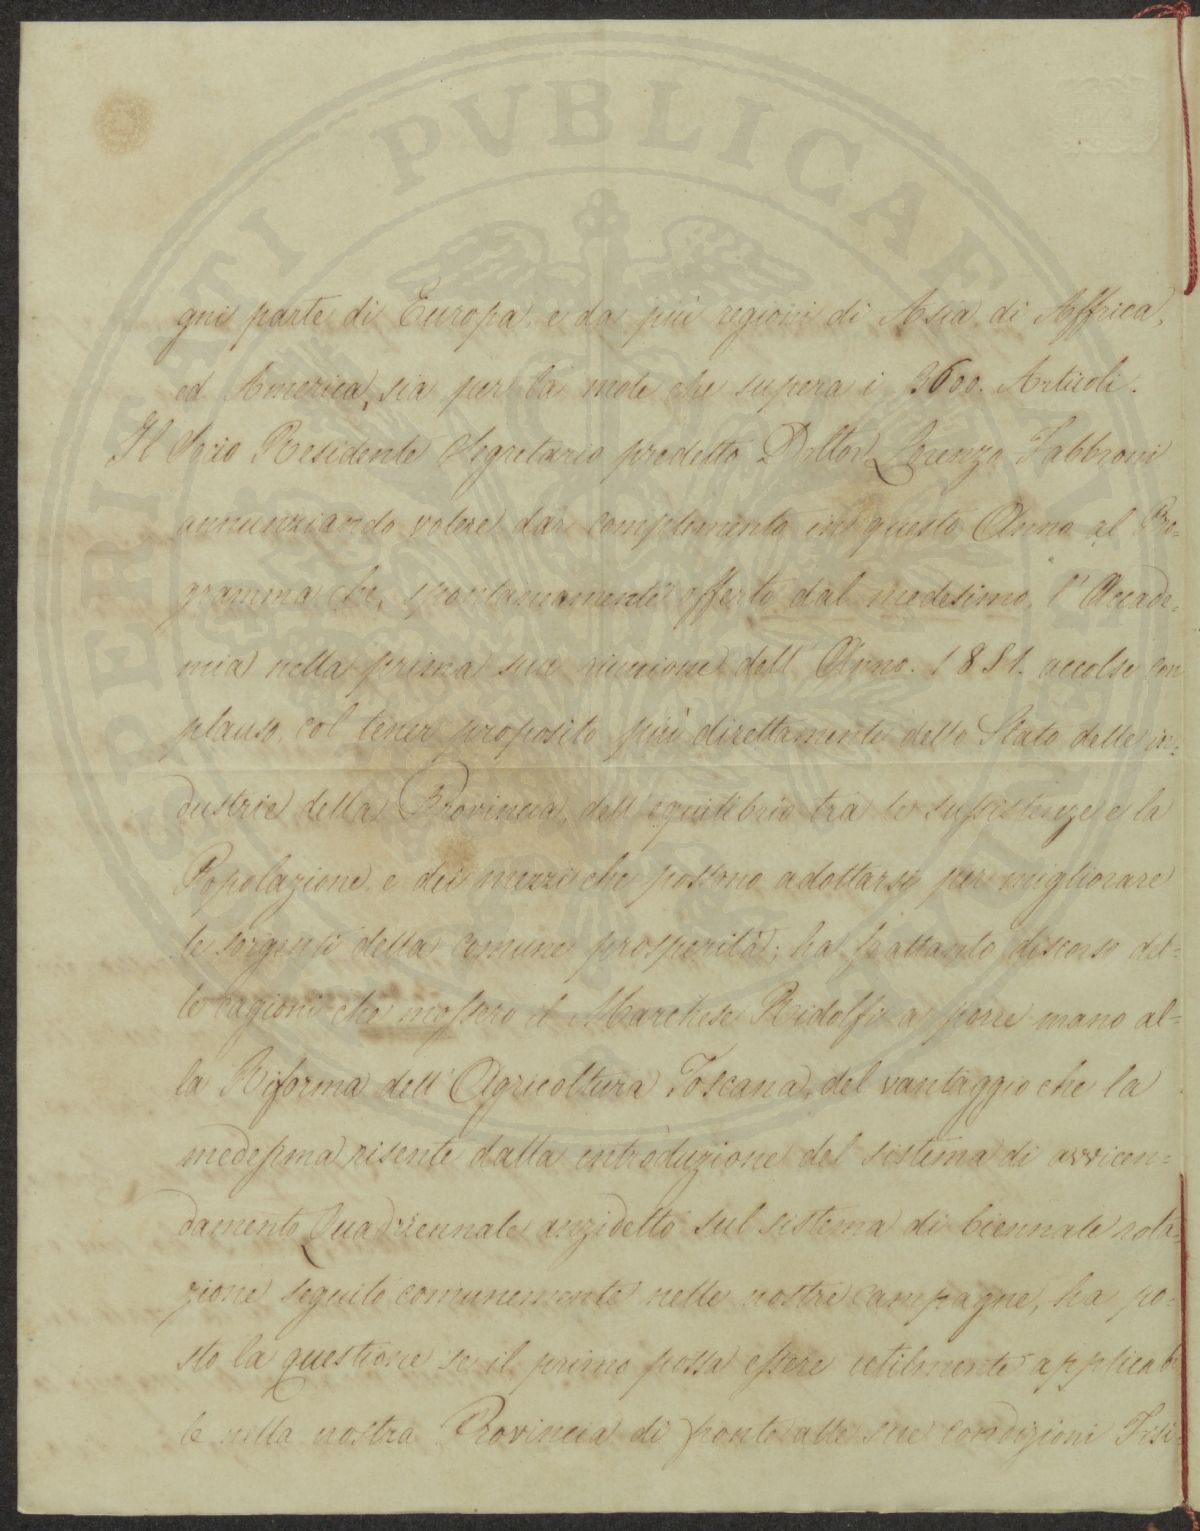 PROSPERITATI PVBLICAE AVGENDAE
gni parte di Europa, e da più regioni di Asia, di Affrica,
ed America, sia per la mole che supera i 3600. Articoli.
Il Socio Residente Segretario predetto Dottor Lorenzo Fabbroni
annunziando volere dar compimento in questo Anno al Pro-
gramma che, spontaneamente offerto dal medesimo, l'Accade-
mia nella prima sua riunione dell'Anno. 1851. accolse con
plauso, col tener proposito più direttamente dello Stato delle in-
dustrie della Provincia, dell'equilibrio tra le sussistenze e la
Popolazione, e dei mezzi che possono adottarsi per migliorare
le sorgenti della comune prosperità; ha frattanto discorso del-
le cagioni che mossero il Marchese Ridolfi a porre mano al-
la Riforma dell'Agricoltura Toscana, del vantaggio che la
medesima risente dalla introduzione del sistema di avvicen-
damento Quadriennale anzidetto sul sistema di biennale rota-
zione seguito comunemente nelle nostre campagne, ha po-
sto la questione se il primo possa essere utilmente applicabi-
le nella nostra Provincia di fronte alle sue condizioni Fisi-